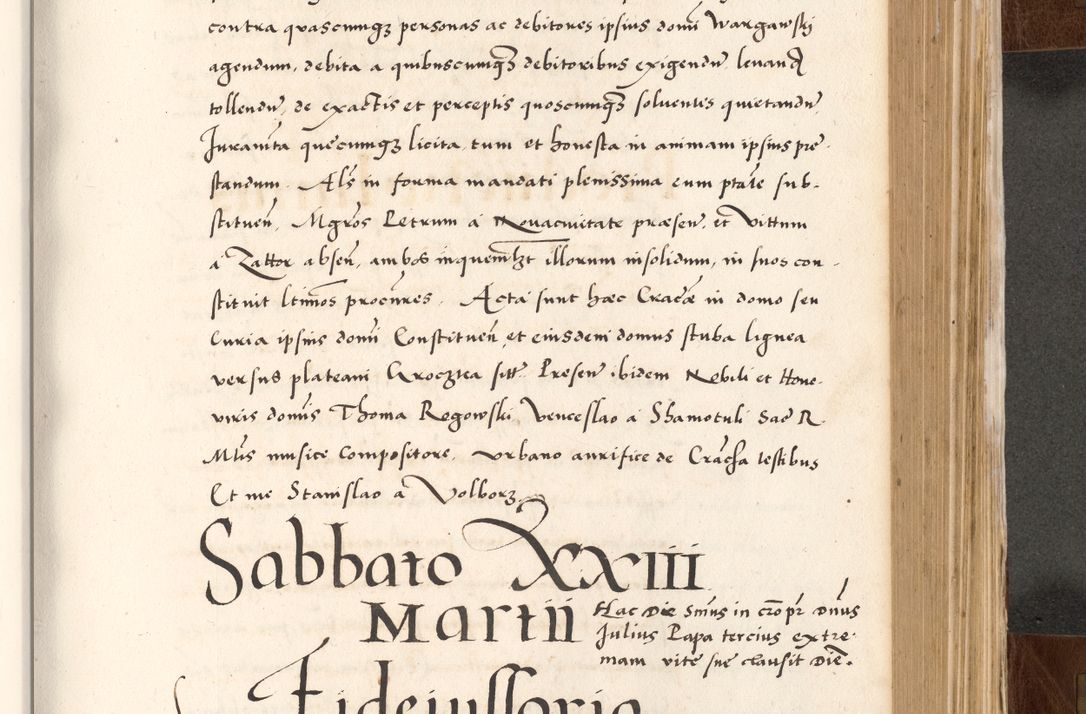 contra quascumqz personas ac debitores ipsius domĩ Wargawski
agendum, debita a quibuscumqz debitoribus exigendũ levand
tollendũ, de exactis et perceptis quoscumqz solventes quietandũ
Juramẽta quecumqz licita tum et honesta in animam ipsius pre-
standum. Als in forma mandati plenissima cum ptãte sub-
stituen̄, Mgros Petrum a Novacivitate præsen̄, et Vittum
a Zattor absen̄, ambos in quemlzt illorum insolidum, in suos con-
stituit ltimos procures. Acta sunt hæc Cracæ in domo seu
Curia ipsius domĩ Constituen̄ et eiusdem domus stuba lignea
versus plateam Groczka sitt Presen̄ ibidem Nobili et Hone-
viris domis Thoma Rogowski, Venceslao a Shamotuli Sac R.
Mtis musice compositore, Urbano aurifice de Cracħa testibus
Et me Stanislao a Volborz
Sabbato XXIII
Martii
Hac Die Smus in cro pr dnus
Julius Papa tercius extre-
mam vite sue clausit Diē.
Fideiussoria